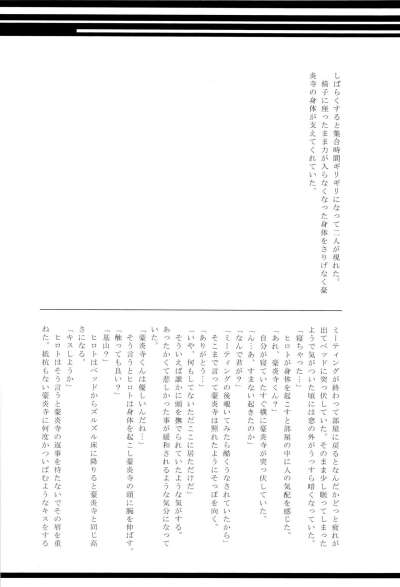 しばらくすると集合時間ギリギリになって二人が現れた。
椅子に座ったまま力が入らなくなった身体をさりげなく豪
炎寺の身体が支えてくれていた。
ミーティングが終わって部屋に戻るとなんだかどっと疲れが
出てベッドに突っ伏していた。そのまま少し眠ってしまった
ようで気がついた頃には窓の外がうっすら暗くなっていた。
「寝ちゃった…」
ヒロトが身体を起こすと部屋の中に人の気配を感じた。
「あれ、豪炎寺くん？」
自分が寝ていたすぐ横に豪炎寺が突っ伏していた。
「ん…あ、すまない起きたのか」
「なんで君が？」
「ミーティングの後覗いてみたら酷くうなされていたから」
そこまで言って豪炎寺は照れたようにそっぽを向く。
「ありがとう…」
「いや、何もしてないただここに居ただけだ」
そういえば誰かに頭を撫でられていたような気がする。
あったかくて悲しかった事が緩和されるような気分になって
い。
「豪炎寺くんは優しいんだね…」
そう言うとヒロトは身体を起こし豪炎寺の頭に腕を伸ばす。
「触っても良い？」
「基山？」
ヒロトはベッドからズルズル床に降りると豪炎寺と同じ高
さになる。
「キスしようか」
ヒロトはそう言うと豪炎寺の返事を待たないでその唇を重
ねた。抵抗もない豪炎寺に何度かついばむようなキスをする